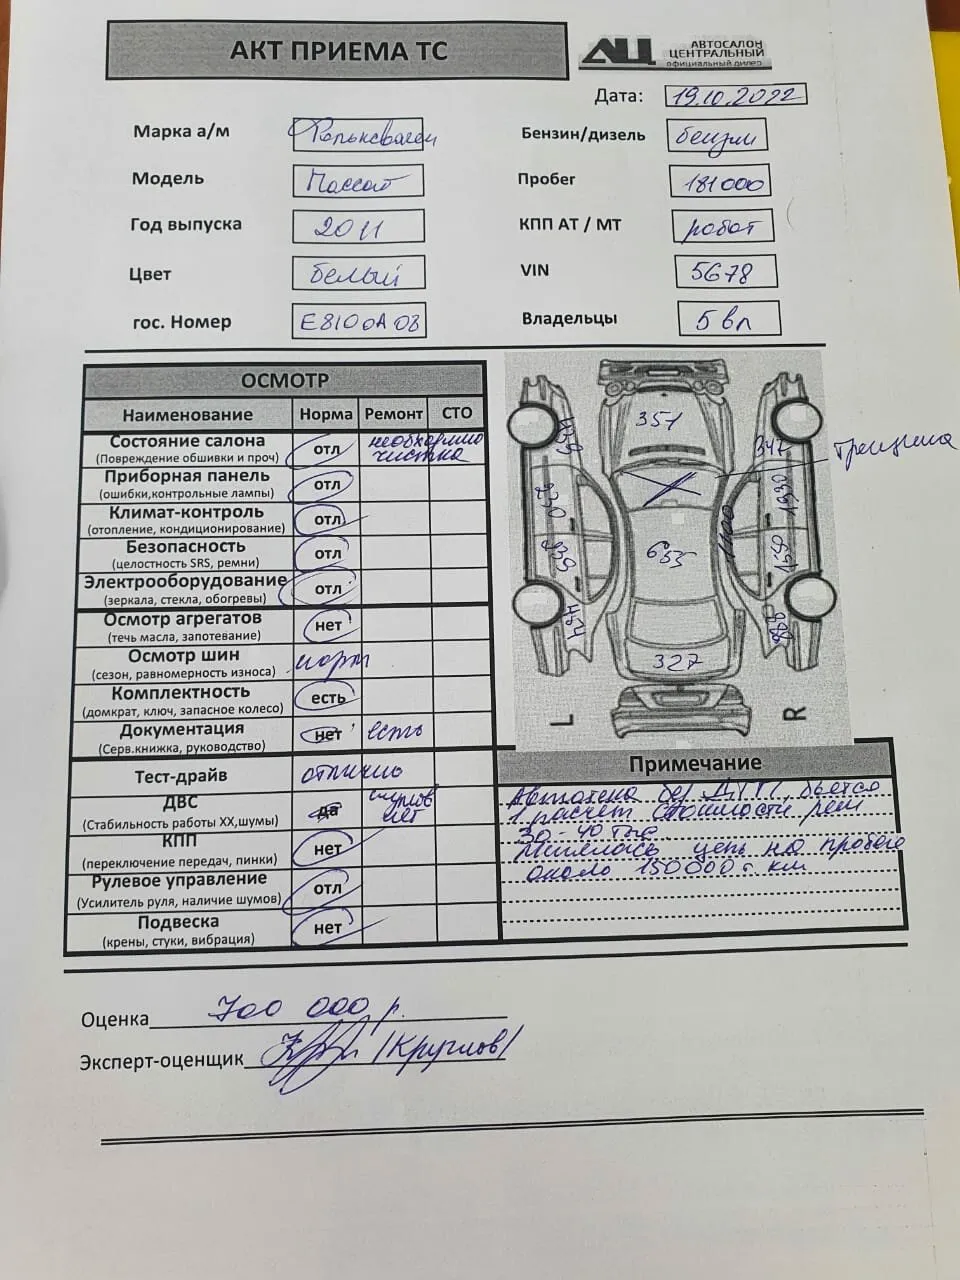 АКТ ПРИЕМА ТС
АЦ АВТОСАЛОН
ЦЕНТРАЛЬНЫЙ
официальный дилер
Дата: 19.10.2022
Марка а/м Фольксваген Бензин/дизель бензин
Модель Пассат Пробег 181000
Год выпуска 2011 КПП АТ / МТ робот
Цвет белый VIN 5678
гос. Номер Е810ОА08 Владельцы 5 вл
ОСМОТР
Наименование Норма Ремонт СТО
Состояние салона отл необходимо
(Повреждение обшивки и проч) чистка
Приборная панель отл
(ошибки,контрольные лампы)
Климат-контроль отл
(отопление, кондиционирование)
Безопасность отл
(целостность SRS, ремни)
Электрооборудование отл
(зеркала, стекла, обогревы)
Осмотр агрегатов нет
(течь масла, запотевание)
Осмотр шин норм
(сезон, равномерность износа)
Комплектность есть
(домкрат, ключ, запасное колесо)
Документация нет есть
(Серв.книжка, руководство)
Тест-драйв отлично
ДВС да шумов
(Стабильность работы ХХ,шумы) нет
КПП нет
(переключение передач, пинки)
Рулевое управление отл
(Усилитель руля, наличие шумов)
Подвеска нет
(крены, стуки, вибрация)
351
347
трещина
1930
1100
655
1550
327
L R
Примечание
Автотека без ДТП, бьется
1 расчет стоимости рем
30-40 тыс
Менялась цепь на пробеге
около 150000 т. км
Оценка 700 000 р.
Эксперт-оценщик /Круглов/